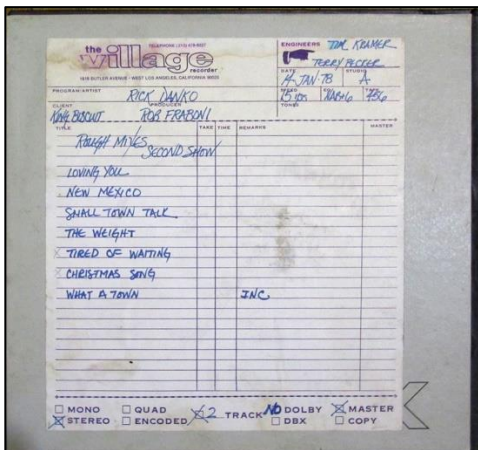 the village recorder
TELEPHONE (213) 478-8227
1616 BUTLER AVENUE · WEST LOS ANGELES, CALIFORNIA 90025
ENGINEERS TIM KRAMER
TERRY BECKER
DATE 14 JAN 78 STUDIO A
PROGRAM/ARTIST RICK DANKO
SPEED 15 ips NAB+6 456
CLIENT KING BISCUIT PRODUCER ROB FRABONI
TONES
TITLE TAKE TIME REMARKS MASTER
ROUGH MIXES
SECOND SHOW
LOVING YOU
NEW MEXICO
SMALL TOWN TALK
THE WEIGHT
X TIRED OF WAITING
X CHRISTMAS SONG
WHAT A TOWN INC
MONO QUAD X 2 TRACK NO DOLBY X MASTER
X STEREO ENCODED DBX COPY